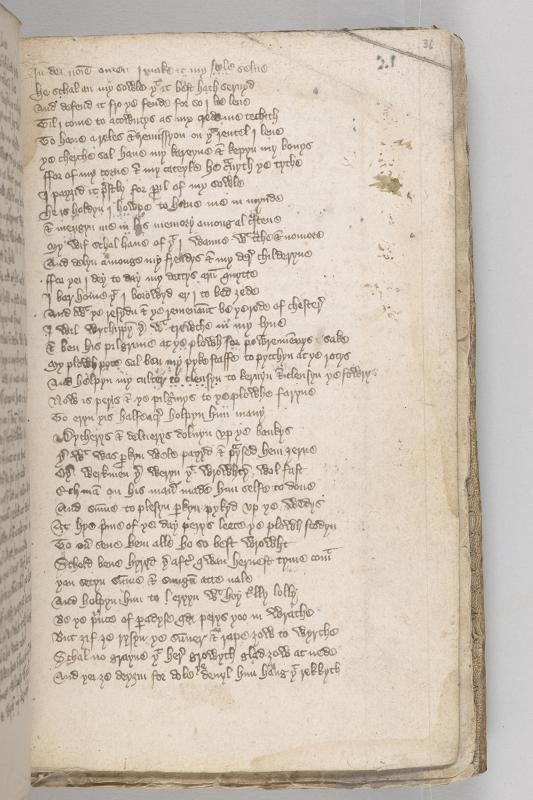 36
In dei no͞ie amen I make it my selfe
He schal an my sowle yt it best hath seruyd
And defend it fro ye fende for so I be leue
Til I come to acowntys as my crede me techith
To haue a reles & remissyon on yt rentel I leue
ye cherche sal haue my kareyne & kepyn my bonys
ffor of my corne & my cateyle he ye tythe
I payzid it for of my sowle
he is holdyn I howpe to haue me in mynde
& mengyn me in his memory among al
My wif schal haue of yt I wanne wt & nomore
And delyn amonge my frendys & my childeryne
ffor yei I dey to day my dettys arn quytte
I bar home yt I borowyd er I to bed zede
And wt ye resydu & ye remenaunt be ye rode of chester
I wil wyrchippy wt in my lyue
& ben his pilgrime at ye plowh for sake
My plowh sal ben my pyke staffe to pycchyn at ye rotys
And holpyn my culter to clensyn to keruyn & clensyn ye forwys
Now is peris & ye pilgrimys to ye plowhe faryne
To eryn yis halfe acre holpyn him many
Dycherys & deluerys doluyn vp ye bankys
yr wt was perkyn wele payzd & praysed hem zerne
Oyr werkmen yr weryn yt wrowhtyn wol fast
Ech man on his maner made him selfe to done
And summe to plesyn perkyn pykyd vp ye wedys
At hye prime of ye day perys leete ye plowh stodyn
To ouer sene hem alle ho so best wrowht
Schold bene hyryd yr after qwan heruest tyme come
yan setyn summe & sungun atte nale
And holpyn him to eryyn wt hoy trolly lolly
Be ye prince of paradyse qd perys yoo in wrathe
But zif ze rysyn ye sunner & rape zow to wyrche
Schal no grayne yt her growyth glad zow at nede
And yei ze deyzin for dole ye deuyl him hang yt rekkyth